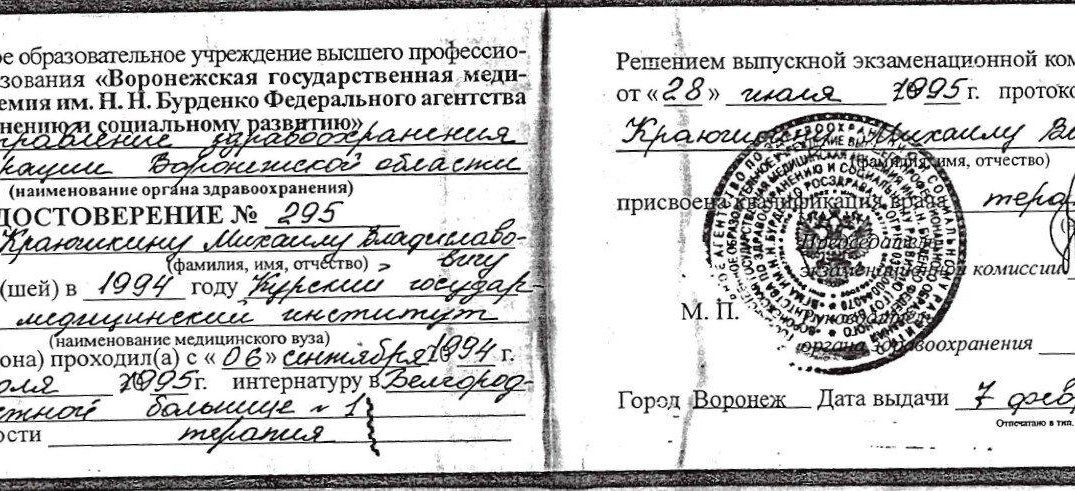 ое образовательное учреждение высшего профессио-
зования «Воронежская государственная меди-
емия им. Н. Н. Бурденко Федерального агентства
нению и социальному развитию»
правление здравоохранения
рации Воронежской области
(наименование органа здравоохранения)
ДОСТОВЕРЕНИЕ № 295
Краюшкину Михаилу Владиславо-
вичу
(фамилия, имя, отчество)
(шей) в 1994 году Курский государ-
медицинский институт
(наименование медицинского вуза)
она) проходил(а) с «06» сентября 1994 г.
юля 1995г. интернатуру в Белгород-
стной больнице № 1
ости терапия
Решением выпускной экзаменационной ком
от «28» июля 1995 г. протоко
Краюшкину Михаилу Вл
(фамилия, имя, отчество)
присвоена квалификация врача тера
Председатель
экзаменационной комиссии
М. П.
органа здравоохранения
Город Воронеж Дата выдачи 7 фев
Отпечатано в тип.